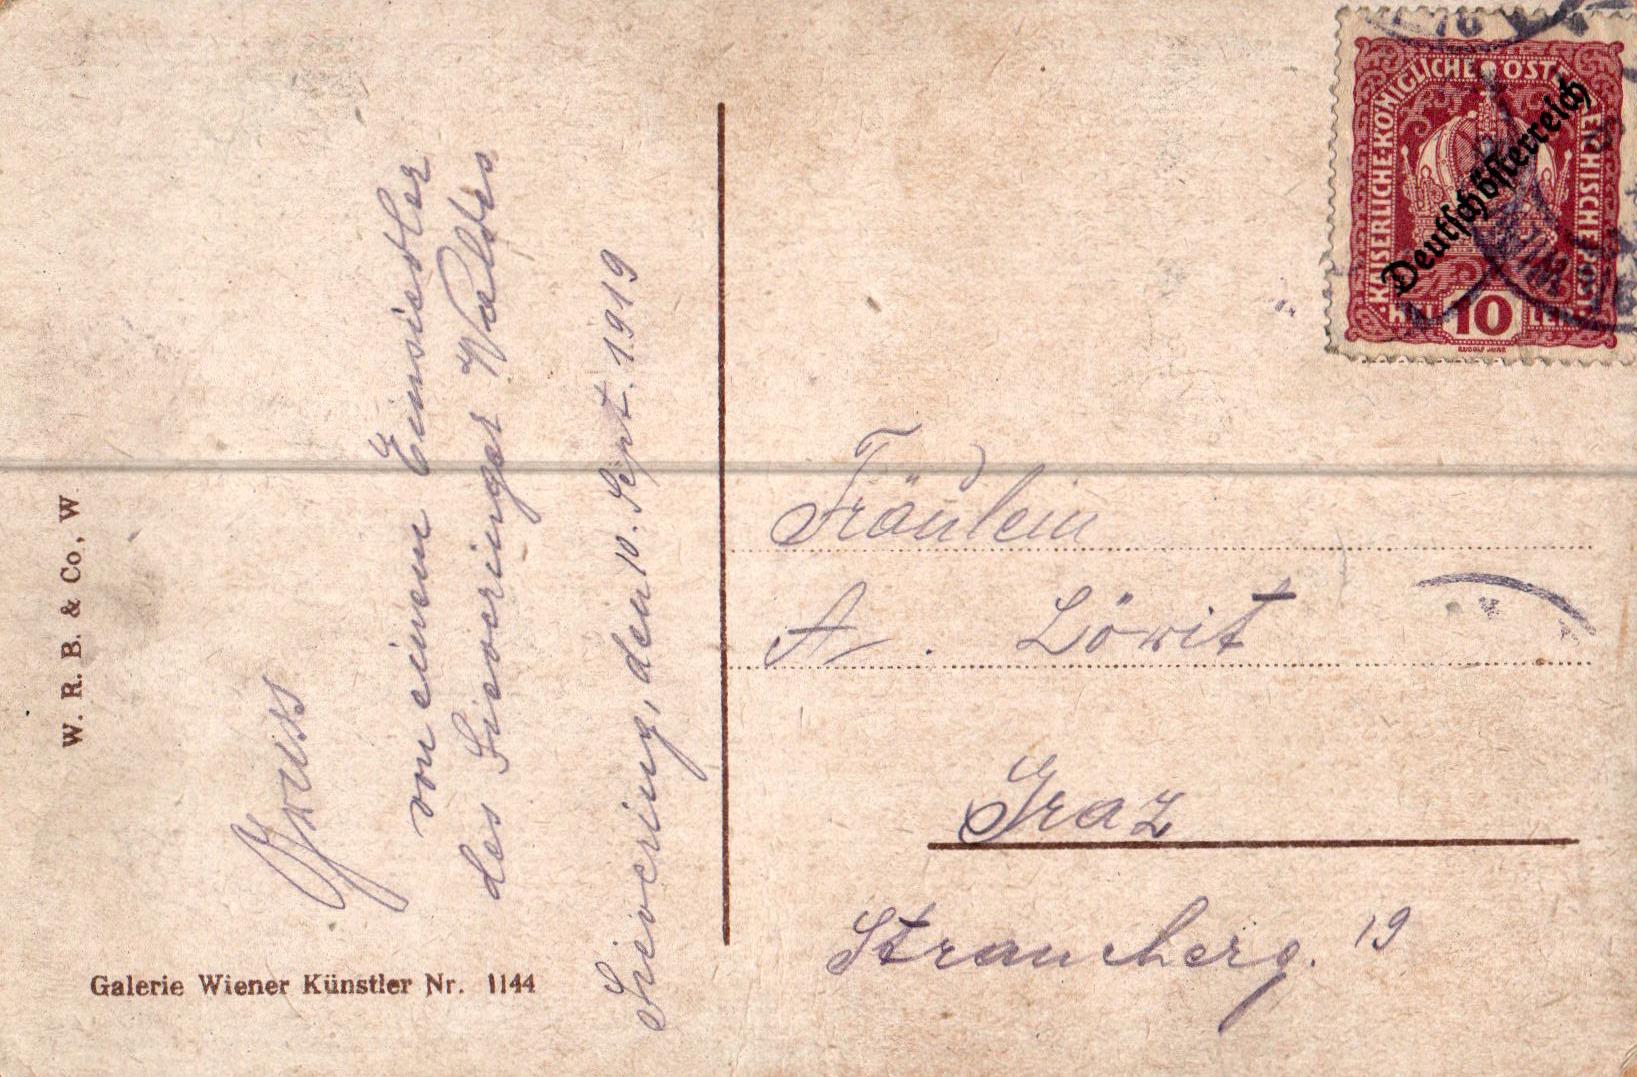 W. R. B. & Co., W
Gruss
von einem Einsiedler
des Sieveringer Waldes
Sievering, den 10. Sept. 1919
Galerie Wiener Künstler Nr. 1144
KAISERLICHE KÖNIGLICHE ÖSTERREICHISCHE POST
Deutschösterreich
10
Fräulein
A. Löwit
Graz
Straucherg. 19